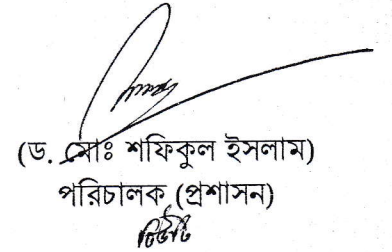 (ড. মোঃ শফিকুল ইসলাম)
পরিচালক (প্রশাসন)